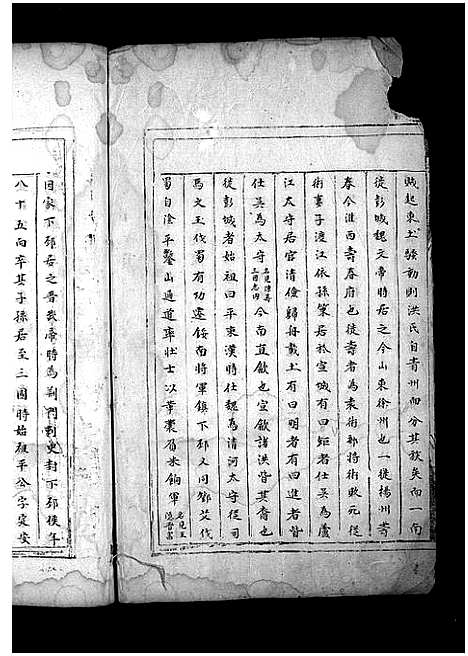 賊起東土騷動則洪氏自青州而分其族矣而一南
徙彭城魏文帝時居之今山東徐州也一徙楊州壽
春今淮西壽春府也徙壽者為袁術部將術敗元從
術妻子渡江依孫策居於宣城有曰矩者仕吳為廬
江太守居官清儉歸舟載土有曰明者有曰進者皆
仕吳為太守名見陳壽三國志內今南直歙也宣歙諸洪皆其裔也
徙彭城者始祖曰平東漢時仕魏為清河太守從司
馬文王伐蜀有功遷綏南將軍鎮下邳又同鄧艾伐
蜀自陰平鑿山通道率壯士以葦囊負米餉軍名見王隱晉書
回家下邳居之晉武帝時為荊門刺史封下邳侯年
八十五而卒其子孫居至三國時始祖平公字定安